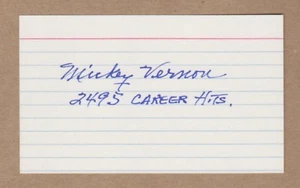 Mickey Vernon
2495 CAREER HITS.